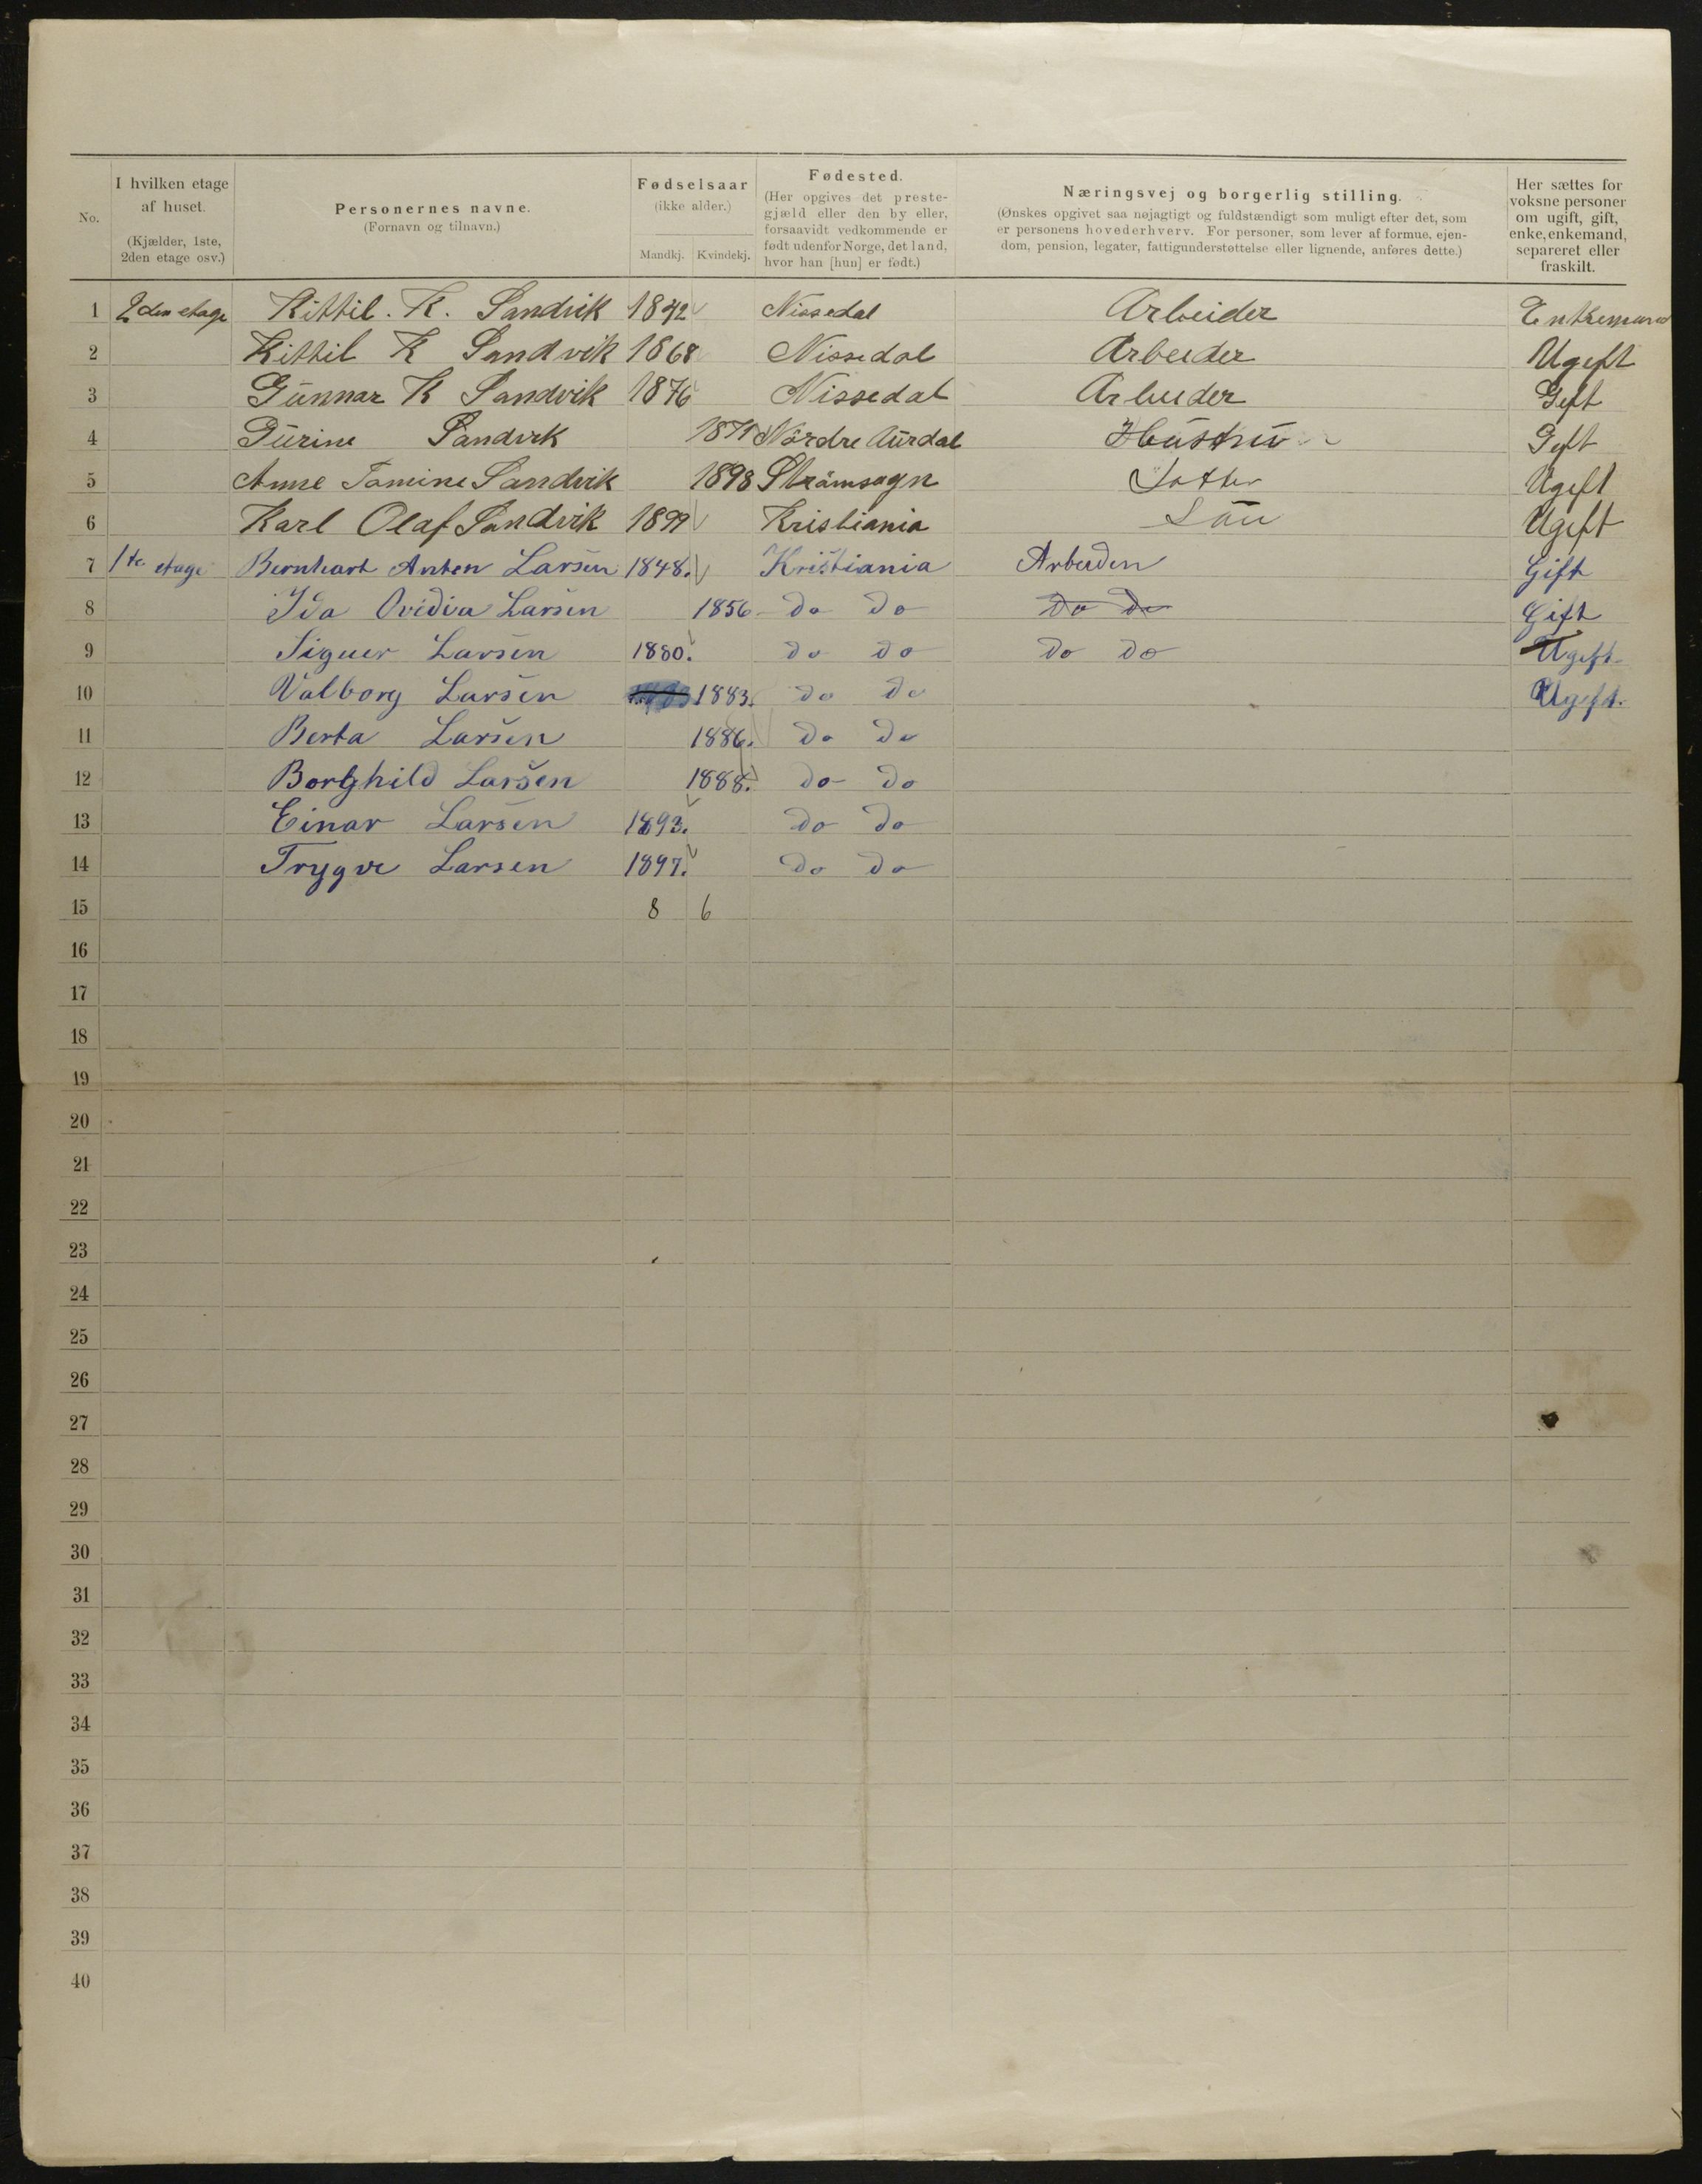 No.
I hvilken etage af huset. (Kjælder, 1ste, 2den etage osv.)
Personernes navne. (Fornavn og tilnavn.)
Fødselsaar (ikke alder.) Mandkj. Kvindekj.
Fødested. (Her opgives det prestegjæld eller den by eller, forsaavidt vedkommende er født udenfor Norge, det land, hvor han [hun] er født.)
Næringsvej og borgerlig stilling. (Ønskes opgivet saa nøjagtigt og fuldstændigt som muligt efter det, som er personens hovederhverv. For personer, som lever af formue, ejendom, pension, legater, fattigunderstøttelse eller lignende, anføres dette.)
Her sættes for voksne personer om ugift, gift, enke, enkemand, separeret eller fraskilt.
1 2den etage Kittil. K. Sandvik 1842 Nissedal Arbeider Enkemand
2 Kittil K Sandvik 1868 Nissedal Arbeider Ugift
3 Gunnar K Sandvik 1876 Nissedal Arbeider Gift
4 Gurine Sandvik Nordre Aurdal Hustru Gift
5 Anne Tomine Sandvik 1898 Strømsogn Datter Ugift
6 Karl Olaf Sandvik 1899 Kristiania Søn Ugift
7 1te etage Bernhart Anton Larsen 1848. Kristiania Arbeider Gift
8 Ida Ovidia Larsen 1856 do do do do Gift
9 Larsen 1880. do do do do Ugift
10 Valborg Larsen 1883. do do Ugift.
11 Berta Larsen 1886. do do
12 Borghild Larsen 1888. do do
13 Einar Larsen 1893. do do
14 Trygve Larsen 1897. do do
15 8 6
16
17
18
19
20
21
22
23
24
25
26
27
28
29
30
31
32
33
34
35
36
37
38
39
40